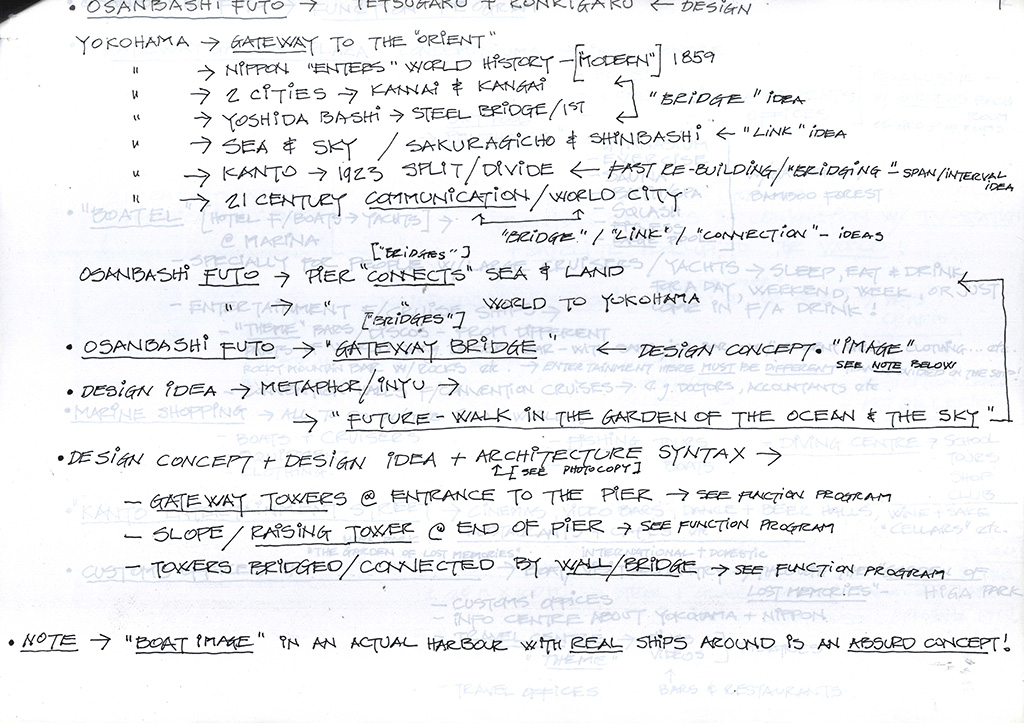 • OSANBASHI FUTO → TETSUGAKU + KONKIGAKU ← DESIGN
YOKOHAMA → GATEWAY TO THE "ORIENT"
" → NIPPON "ENTERS" WORLD HISTORY – ["MODERN"] 1859
" → 2 CITIES → KANNAI & KANGAI
"BRIDGE" IDEA
" → YOSHIDA BASHI → STEEL BRIDGE/1ST
" → SEA & SKY / SAKURAGICHO & SHINBASHI ← "LINK" IDEA
" → KANTO → 1923 SPLIT/DIVIDE ← FAST RE-BUILDING/"BRIDGING" – SPAN/INTERVAL IDEA
" → 21 CENTURY COMMUNICATION/WORLD CITY
"BRIDGE" / "LINK" / "CONNECTION" – IDEAS
["BRIDGES"]
OSANBASHI FUTO → PIER "CONNECTS" SEA & LAND
" → " " WORLD TO YOKOHAMA
["BRIDGES"]
• OSANBASHI FUTO → "GATEWAY BRIDGE" ← DESIGN CONCEPT • "IMAGE"
SEE NOTE BELOW
• DESIGN IDEA → METAPHOR/INYU →
→ "FUTURE – WALK IN THE GARDEN OF THE OCEAN & THE SKY"
• DESIGN CONCEPT + DESIGN IDEA + ARCHITECTURE SYNTAX →
[SEE PHOTOCOPY]
– GATEWAY TOWERS @ ENTRANCE TO THE PIER → SEE FUNCTION PROGRAM
– SLOPE/RAISING TOWER @ END OF PIER → SEE FUNCTION PROGRAM
– TOWERS BRIDGED/CONNECTED BY WALL/BRIDGE → SEE FUNCTION PROGRAM
• NOTE → "BOAT IMAGE" IN AN ACTUAL HARBOUR WITH REAL SHIPS AROUND IS AN ABSURD CONCEPT!